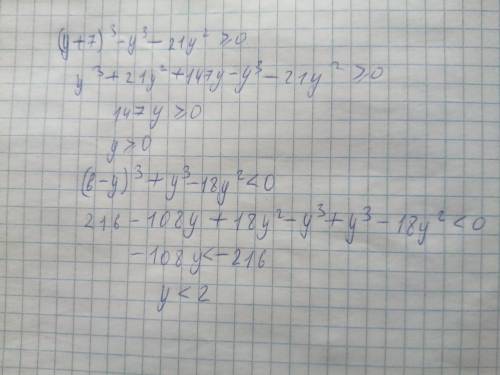 (y+7)³-y³-21y²≥0
y³+21y²+147y-y³-21y²≥0
147y≥0
y>0
(6-y)³+y³-18y²<0
216-108y+18y²-y³+y³-18y²<0
-108y<-216
y<2